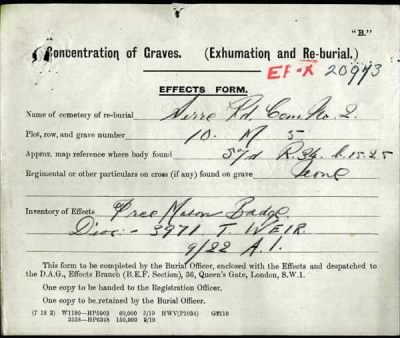 "B."
Concentration of Graves. (Exhumation and Re-burial.)
EF-X 20973
EFFECTS FORM.
Name of cemetery of re-burial Serre Rd. Cem. No. 2.
Plot, row, and grave number 10. M 5
Approx. map reference where body found 57d R.36.
Regimental or other particulars on cross (if any) found on grave
Inventory of Effects Free Mason Badge
Disc:- 3971 T. WEIR.
9/22 A.I.
This form to be completed by the Burial Officer, enclosed with the Effects and despatched to the D.A.G., Effects Branch (B.E.F. Section), 36, Queen's Gate, London, S.W.1.
One copy to be handed to the Registration Officer.
One copy to be retained by the Burial Officer.
(7 18 2) W1180—HP5903 60,000 5/19 HWV(P1034) G2119
3158—HP6348 150,000 9/19